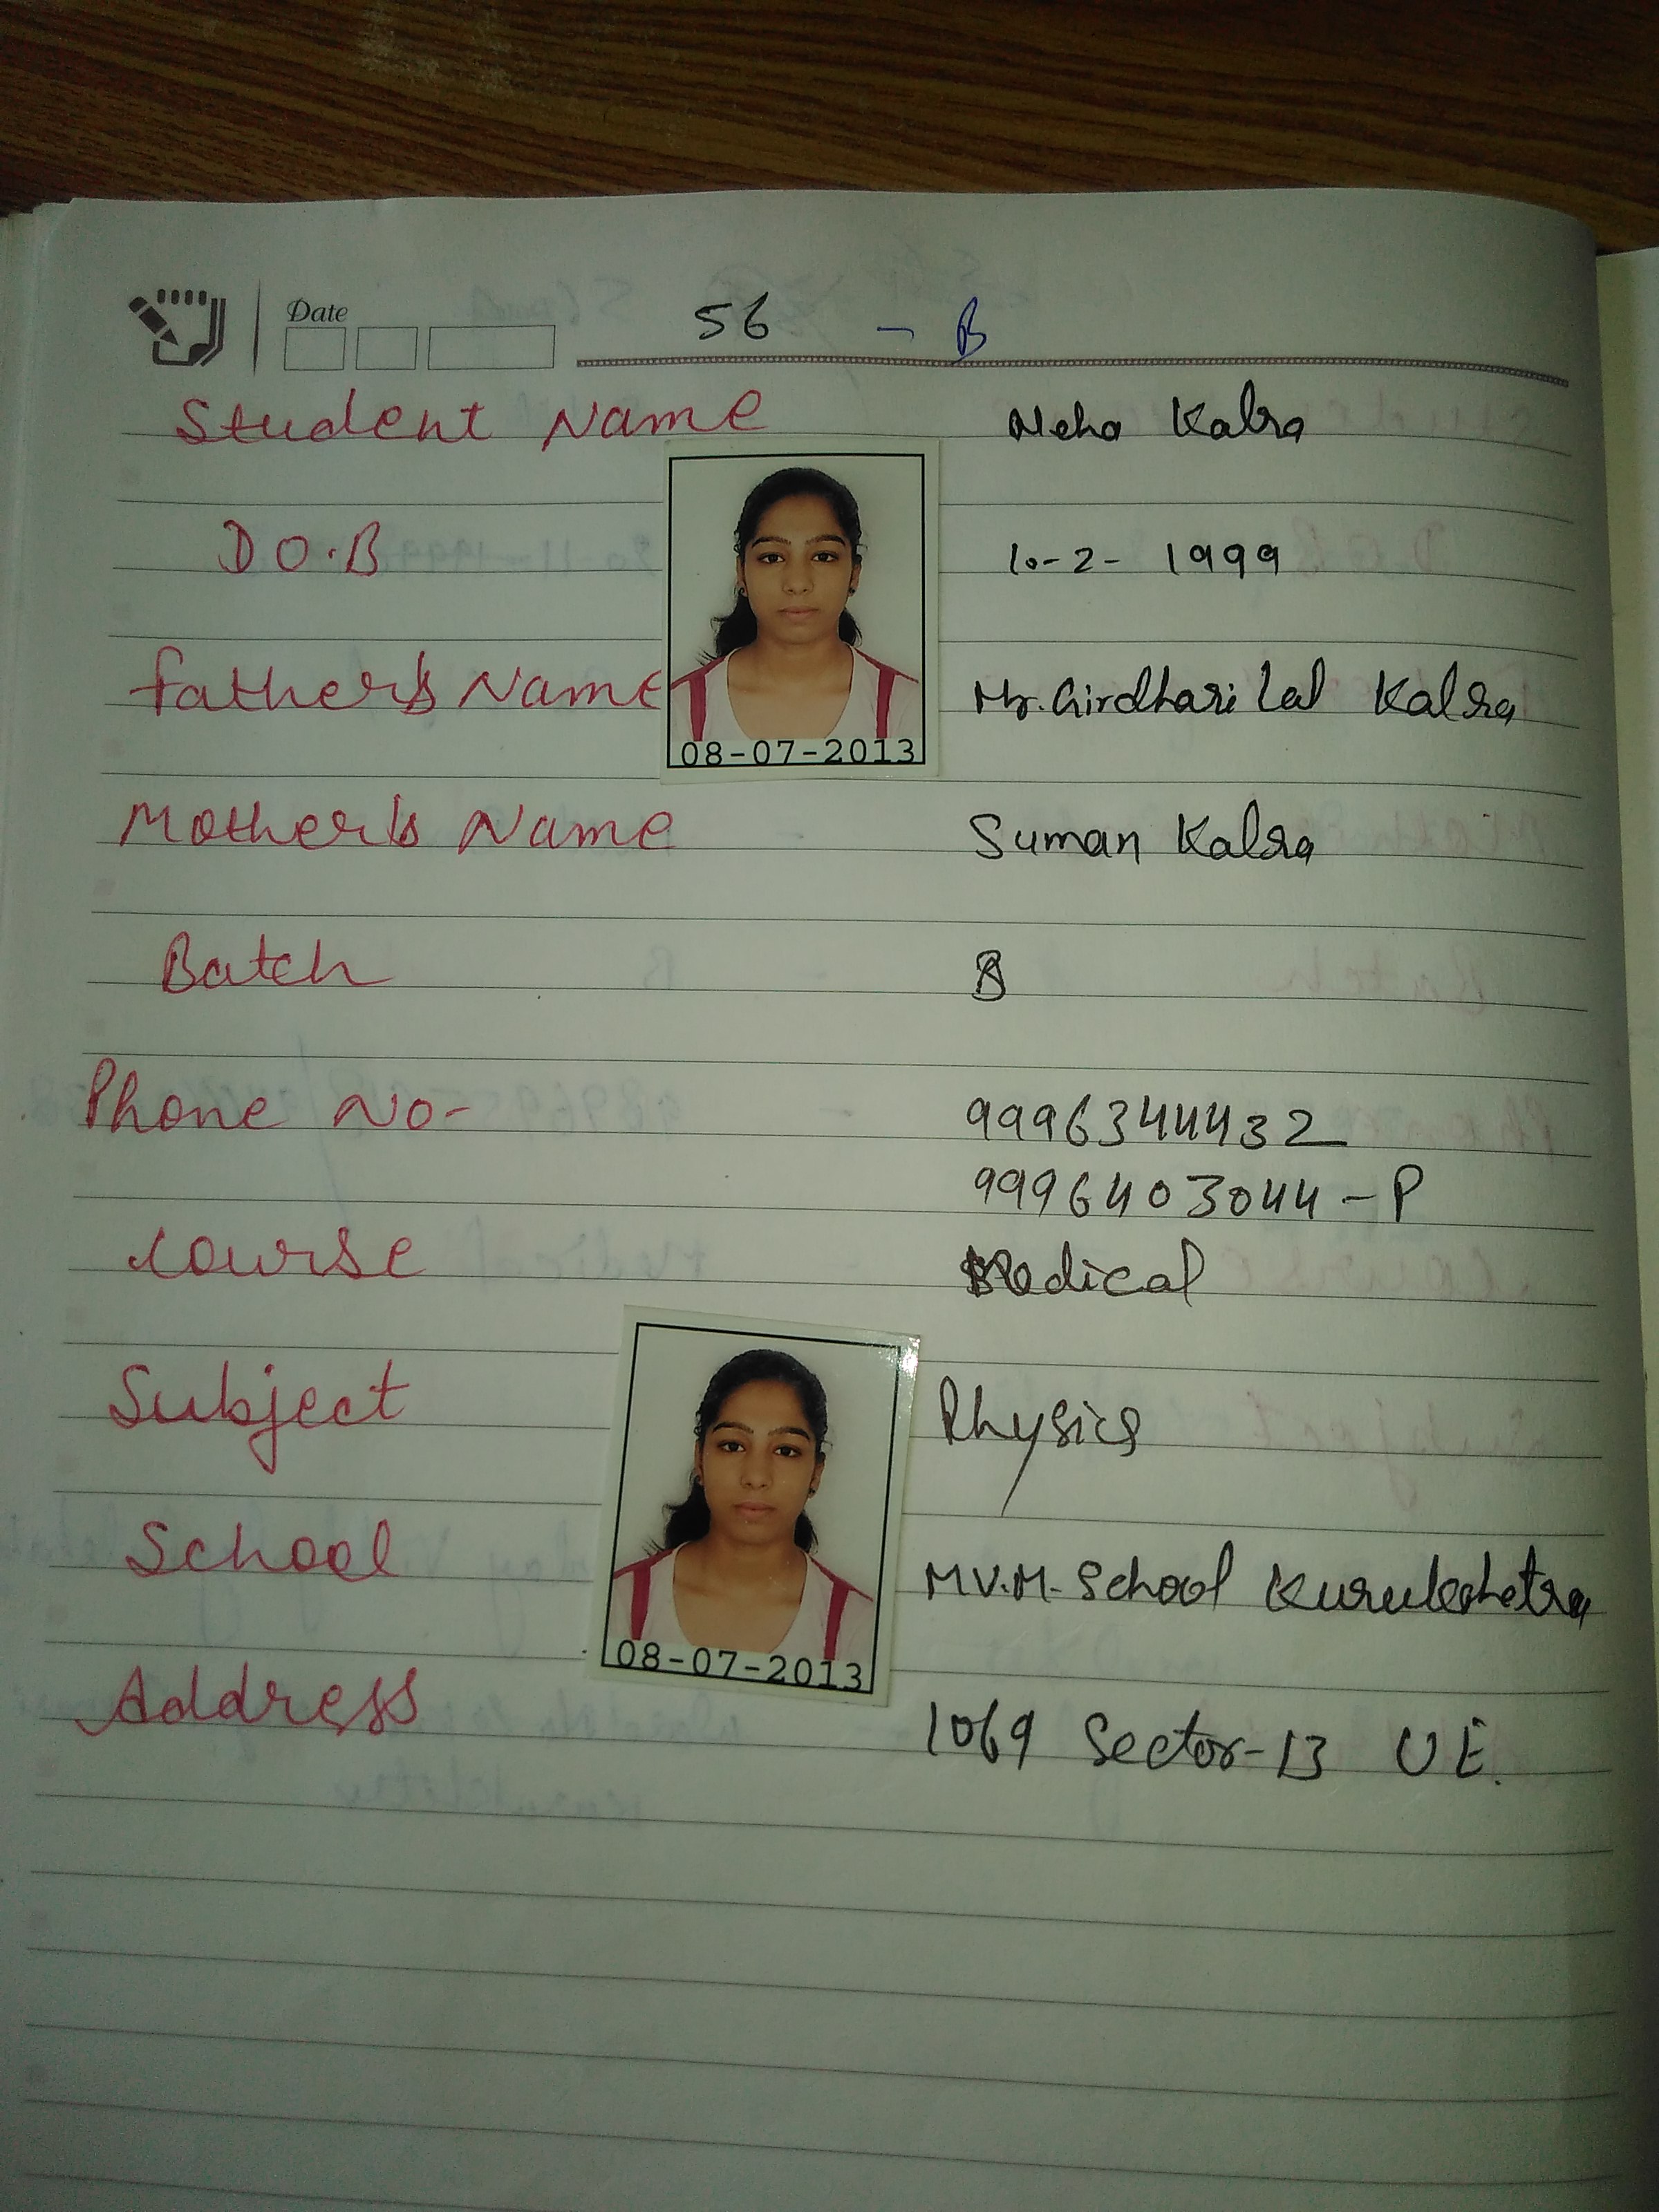 Date 56 - B
Student Name Neha Kalra
D.O.B 10-2-1999
Father's Name Mr. Girdhari Lal Kalra
08-07-2013
Mother's Name Suman Kalra
Batch B
Phone No- 9996344432
9996403044-P
Course Medical
Subject Physics
School M.V.M. School Kurukshetra
08-07-2013
Address 1069 Sector-13 UE.